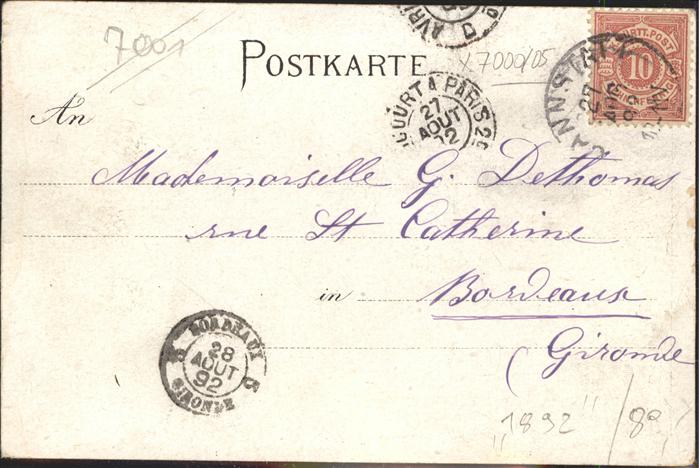 7001
POSTKARTE
x 7000/05
AVRI
K. WÜRTT. POST
10
CANNSTATT
27
AUG
COURT A PARIS 2º
27
AOUT
92
An
Mademoiselle G. Dethomas
rue St Catherine
in Bordeaux
(Gironde
BORDEAUX
28
AOUT
92
GIRONDE
"1892" / 80